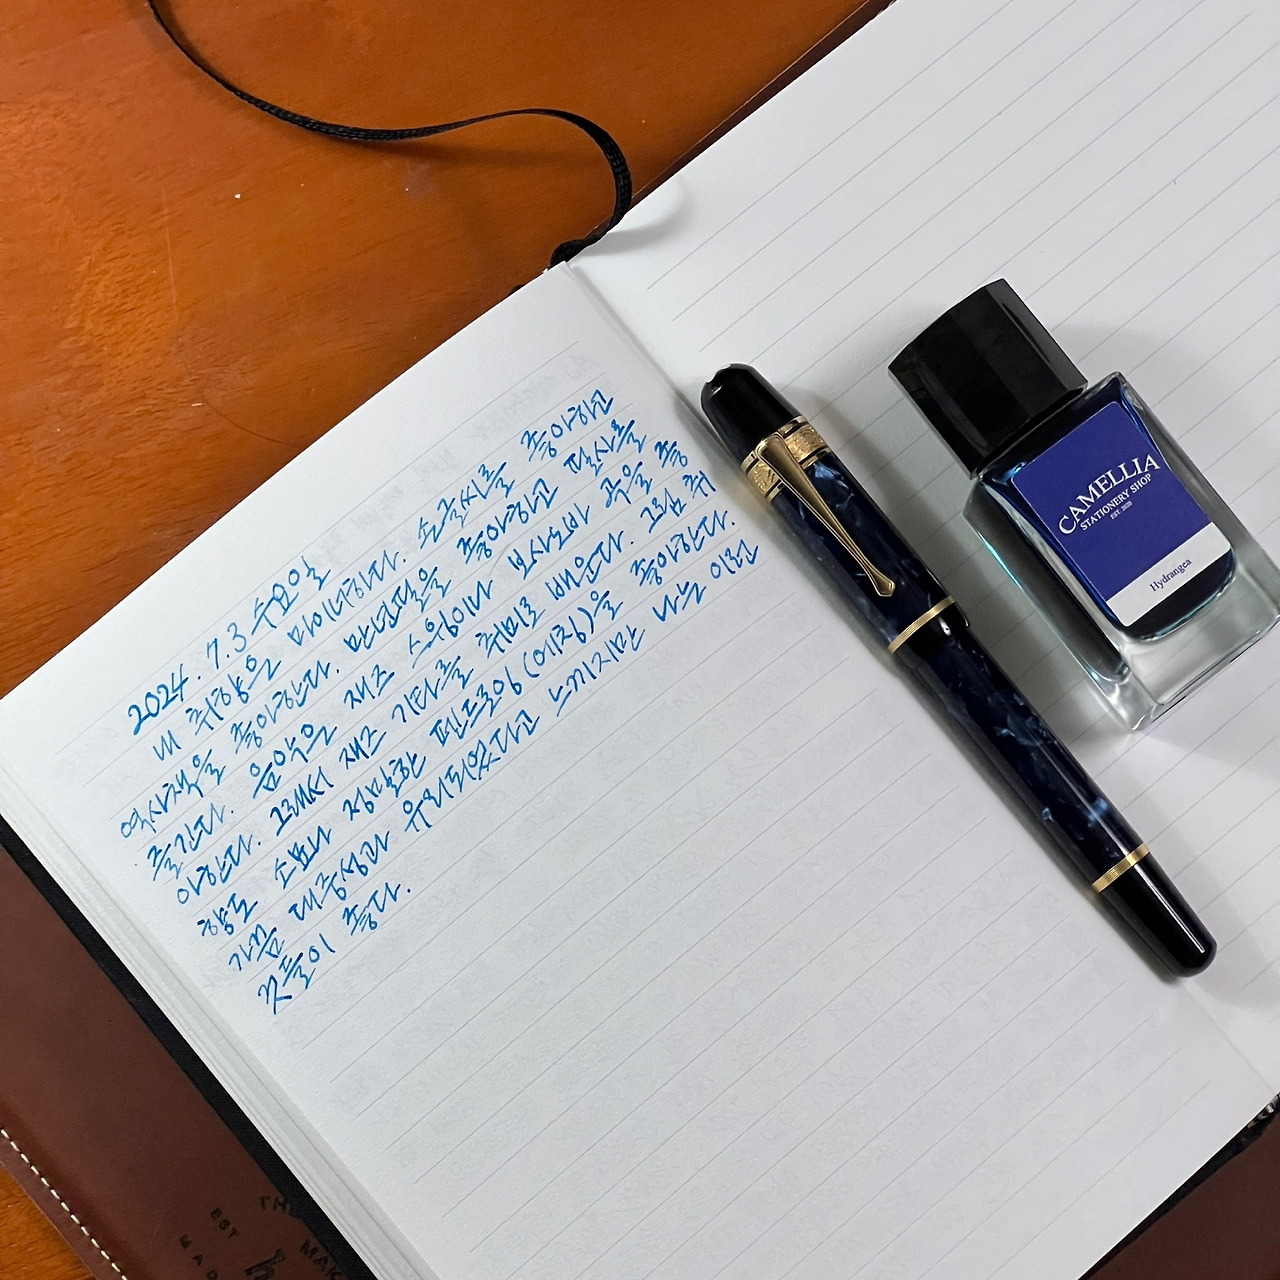 2024. 7. 3 수요일
내 취향은 마이너하다. 손글씨를 좋아하고
역사책을 좋아한다. 만년필을 좋아하고 필사를
즐긴다. 음악은 재즈 스윙이나 보사노바 곡을 좋
아한다. 그래서 재즈 기타를 취미로 배운다. 그림 취
향도 소묘나 정밀한 펜드로잉(에칭)을 좋아한다.
가끔 대중성과 유리되었다고 느끼지만 나는 이런
것들이 좋다.
CAMELLIA
STATIONERY SHOP
EST. 2020
Hydrangea
EST
MAD
MAK